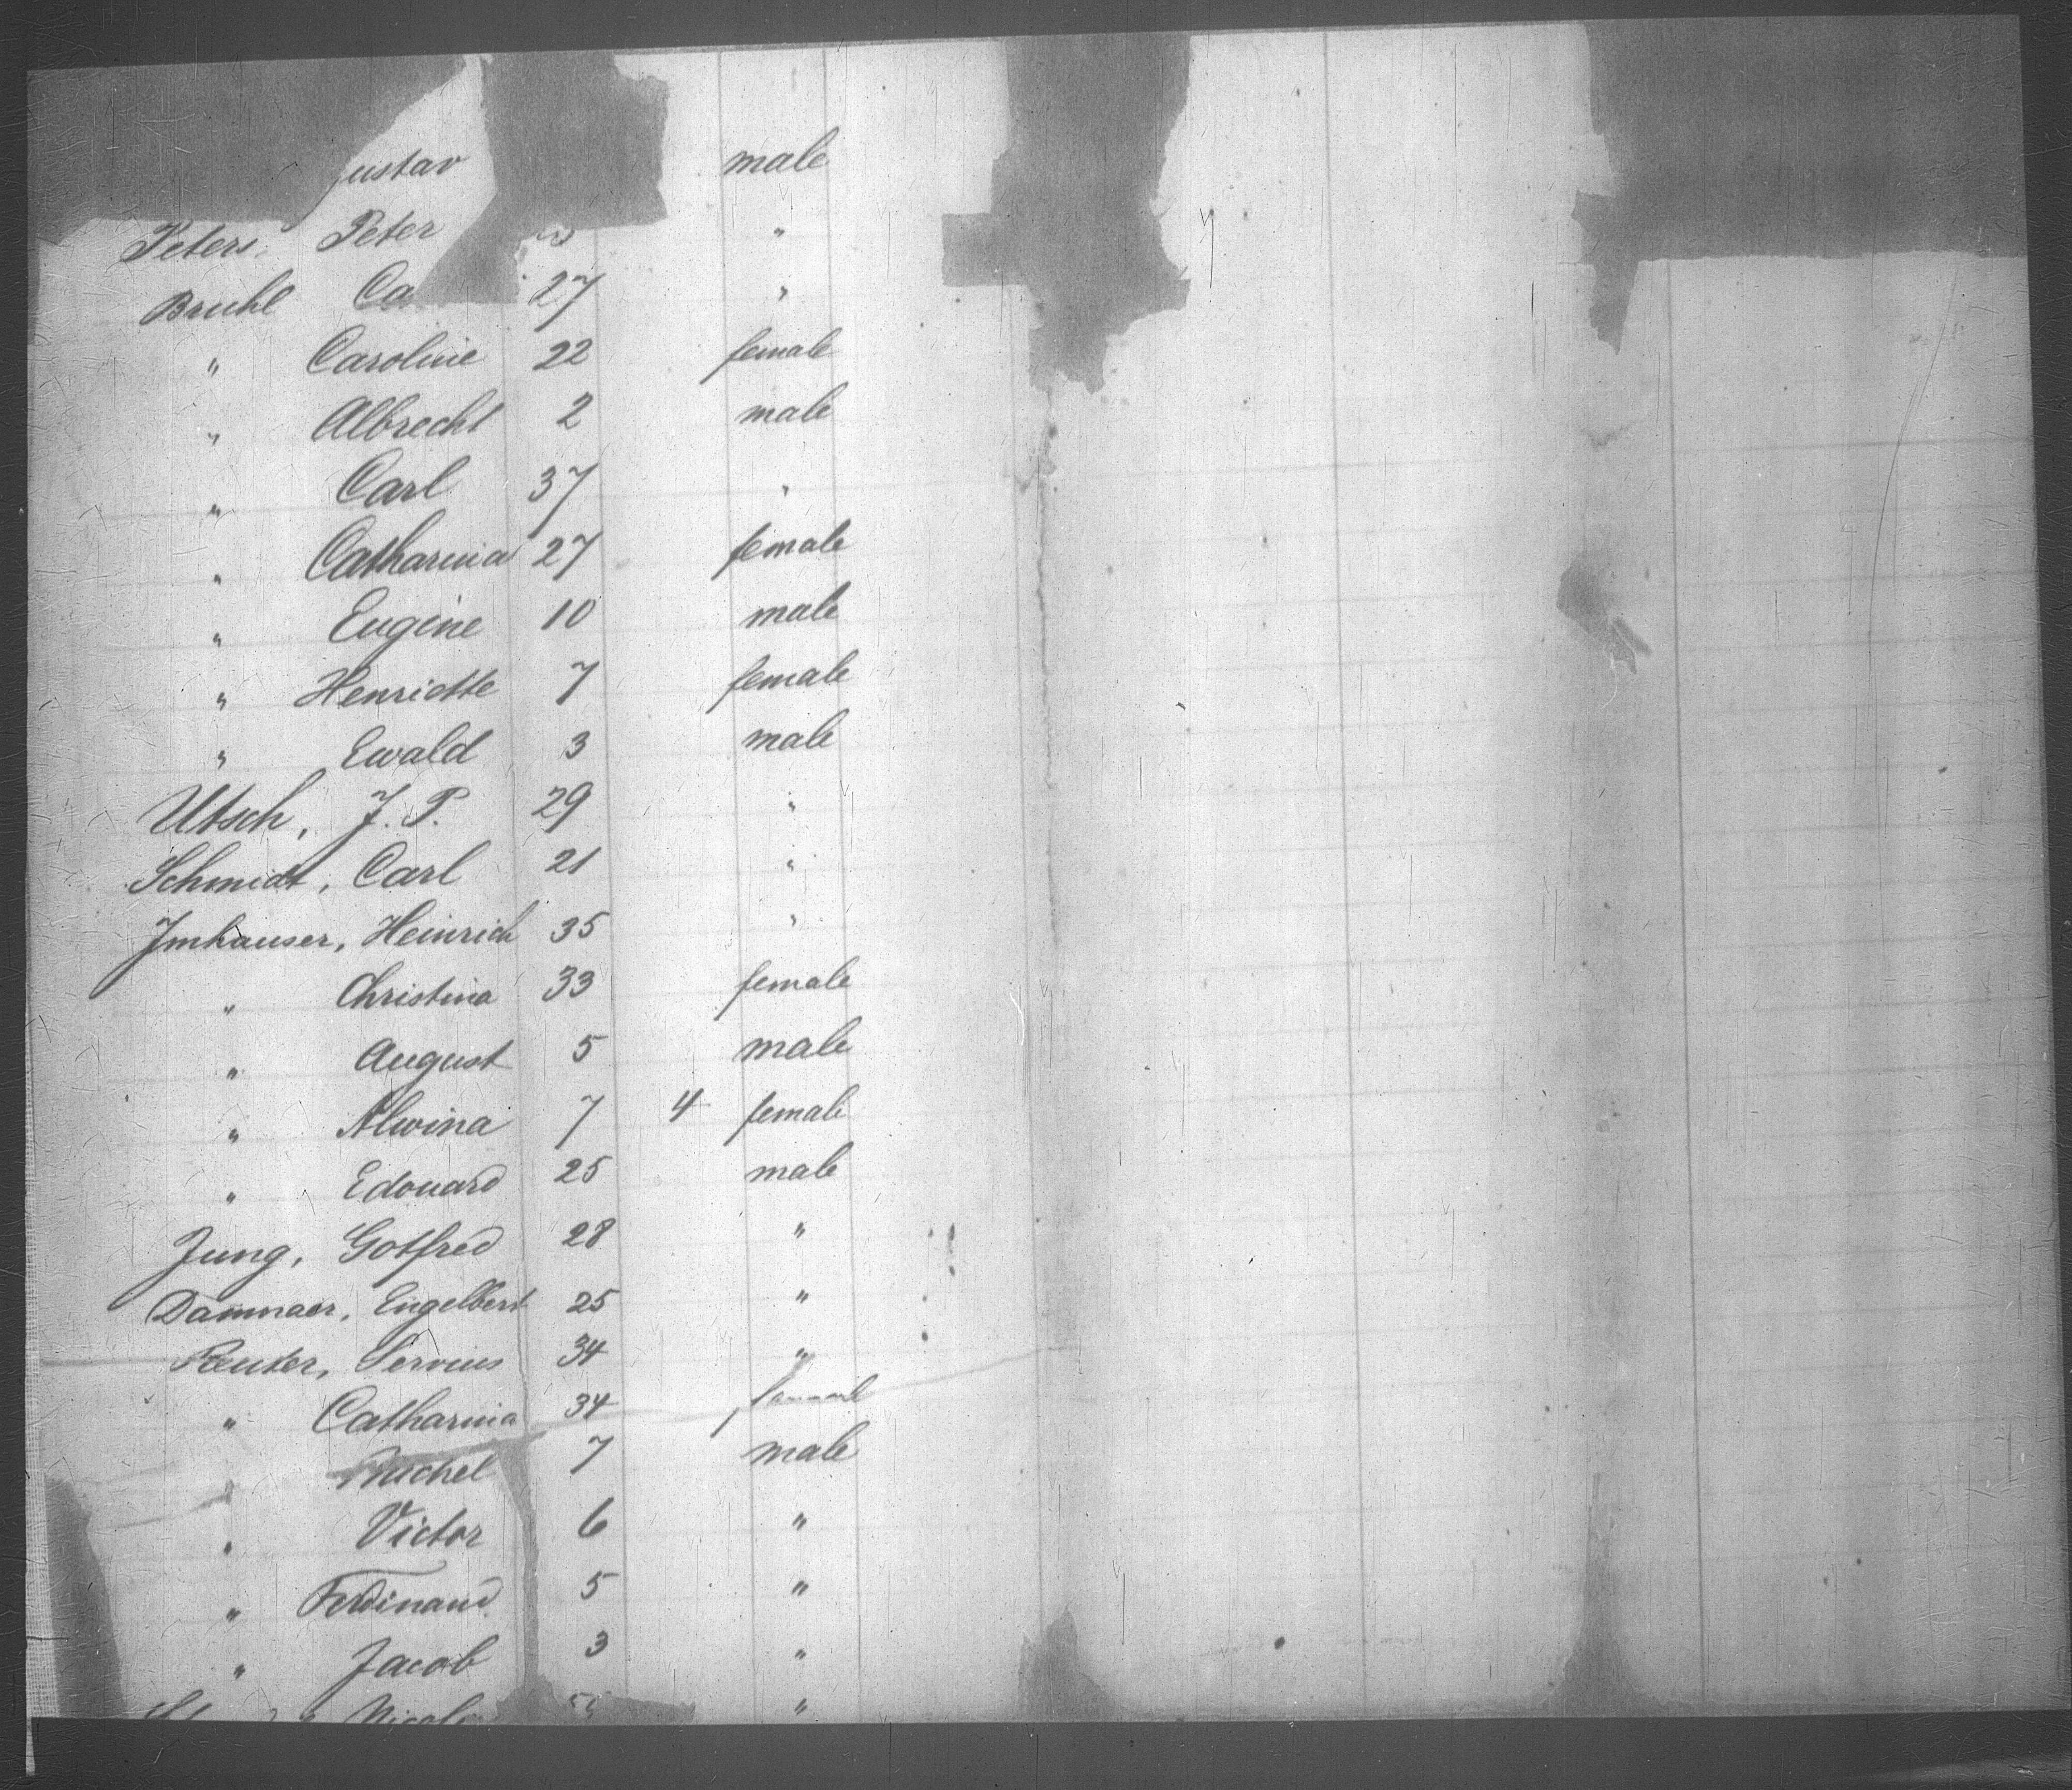 Gustav male
Peters, Peter "
Bruhl Ca 27 "
" Caroline 22 female
" Albrecht 2 male
" Carl 37 "
" Catharina 27 female
" Eugene 10 male
" Henriette 7 female
" Ewald 3 male
Utsch, J. P. 29 "
Schmidt, Carl 21 "
Imhauser, Heinrich 35 "
" Christina 33 female
" August 5 male
" Alwina 7 4 female
" Edouard 25 male
Jung, Gotfred 28 "
Dammaer, Engelbert 25 "
Reuter, Servius 34 "
" Catharina 34 female
" Michel 7 male
" Victor 6 "
" Ferdinand 5 "
" Jacob 3 "
"